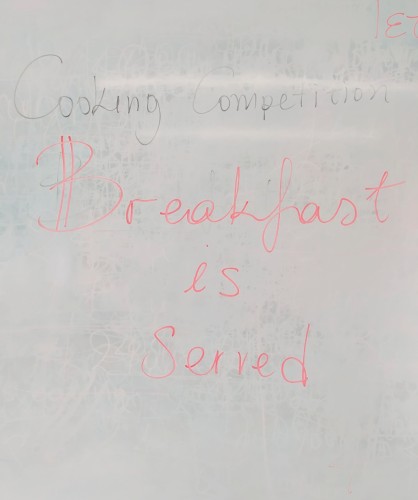 Cooking Competition
Breakfast
is
Served